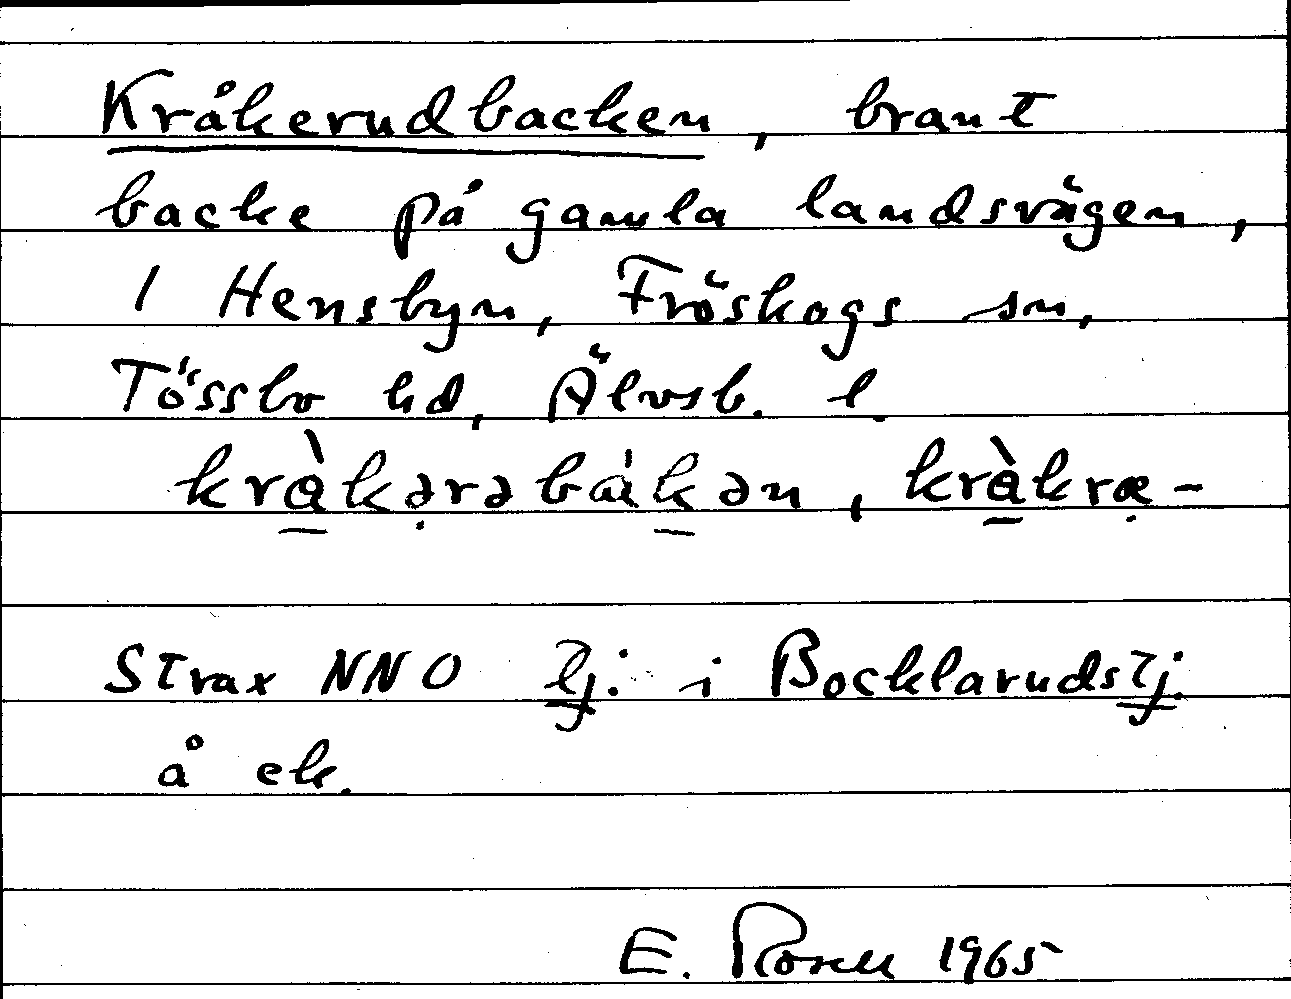 Kråkerudbacken, brant
backe på gamla landsvägen,
1 Hensbyn, Fröskogs sn,
Tössbo hd, Älvsb. l.
kràkərəbákən, kràkræ-
Strax NNO lj. i Bocklarudstj.
å ek.
E. Rosell 1965